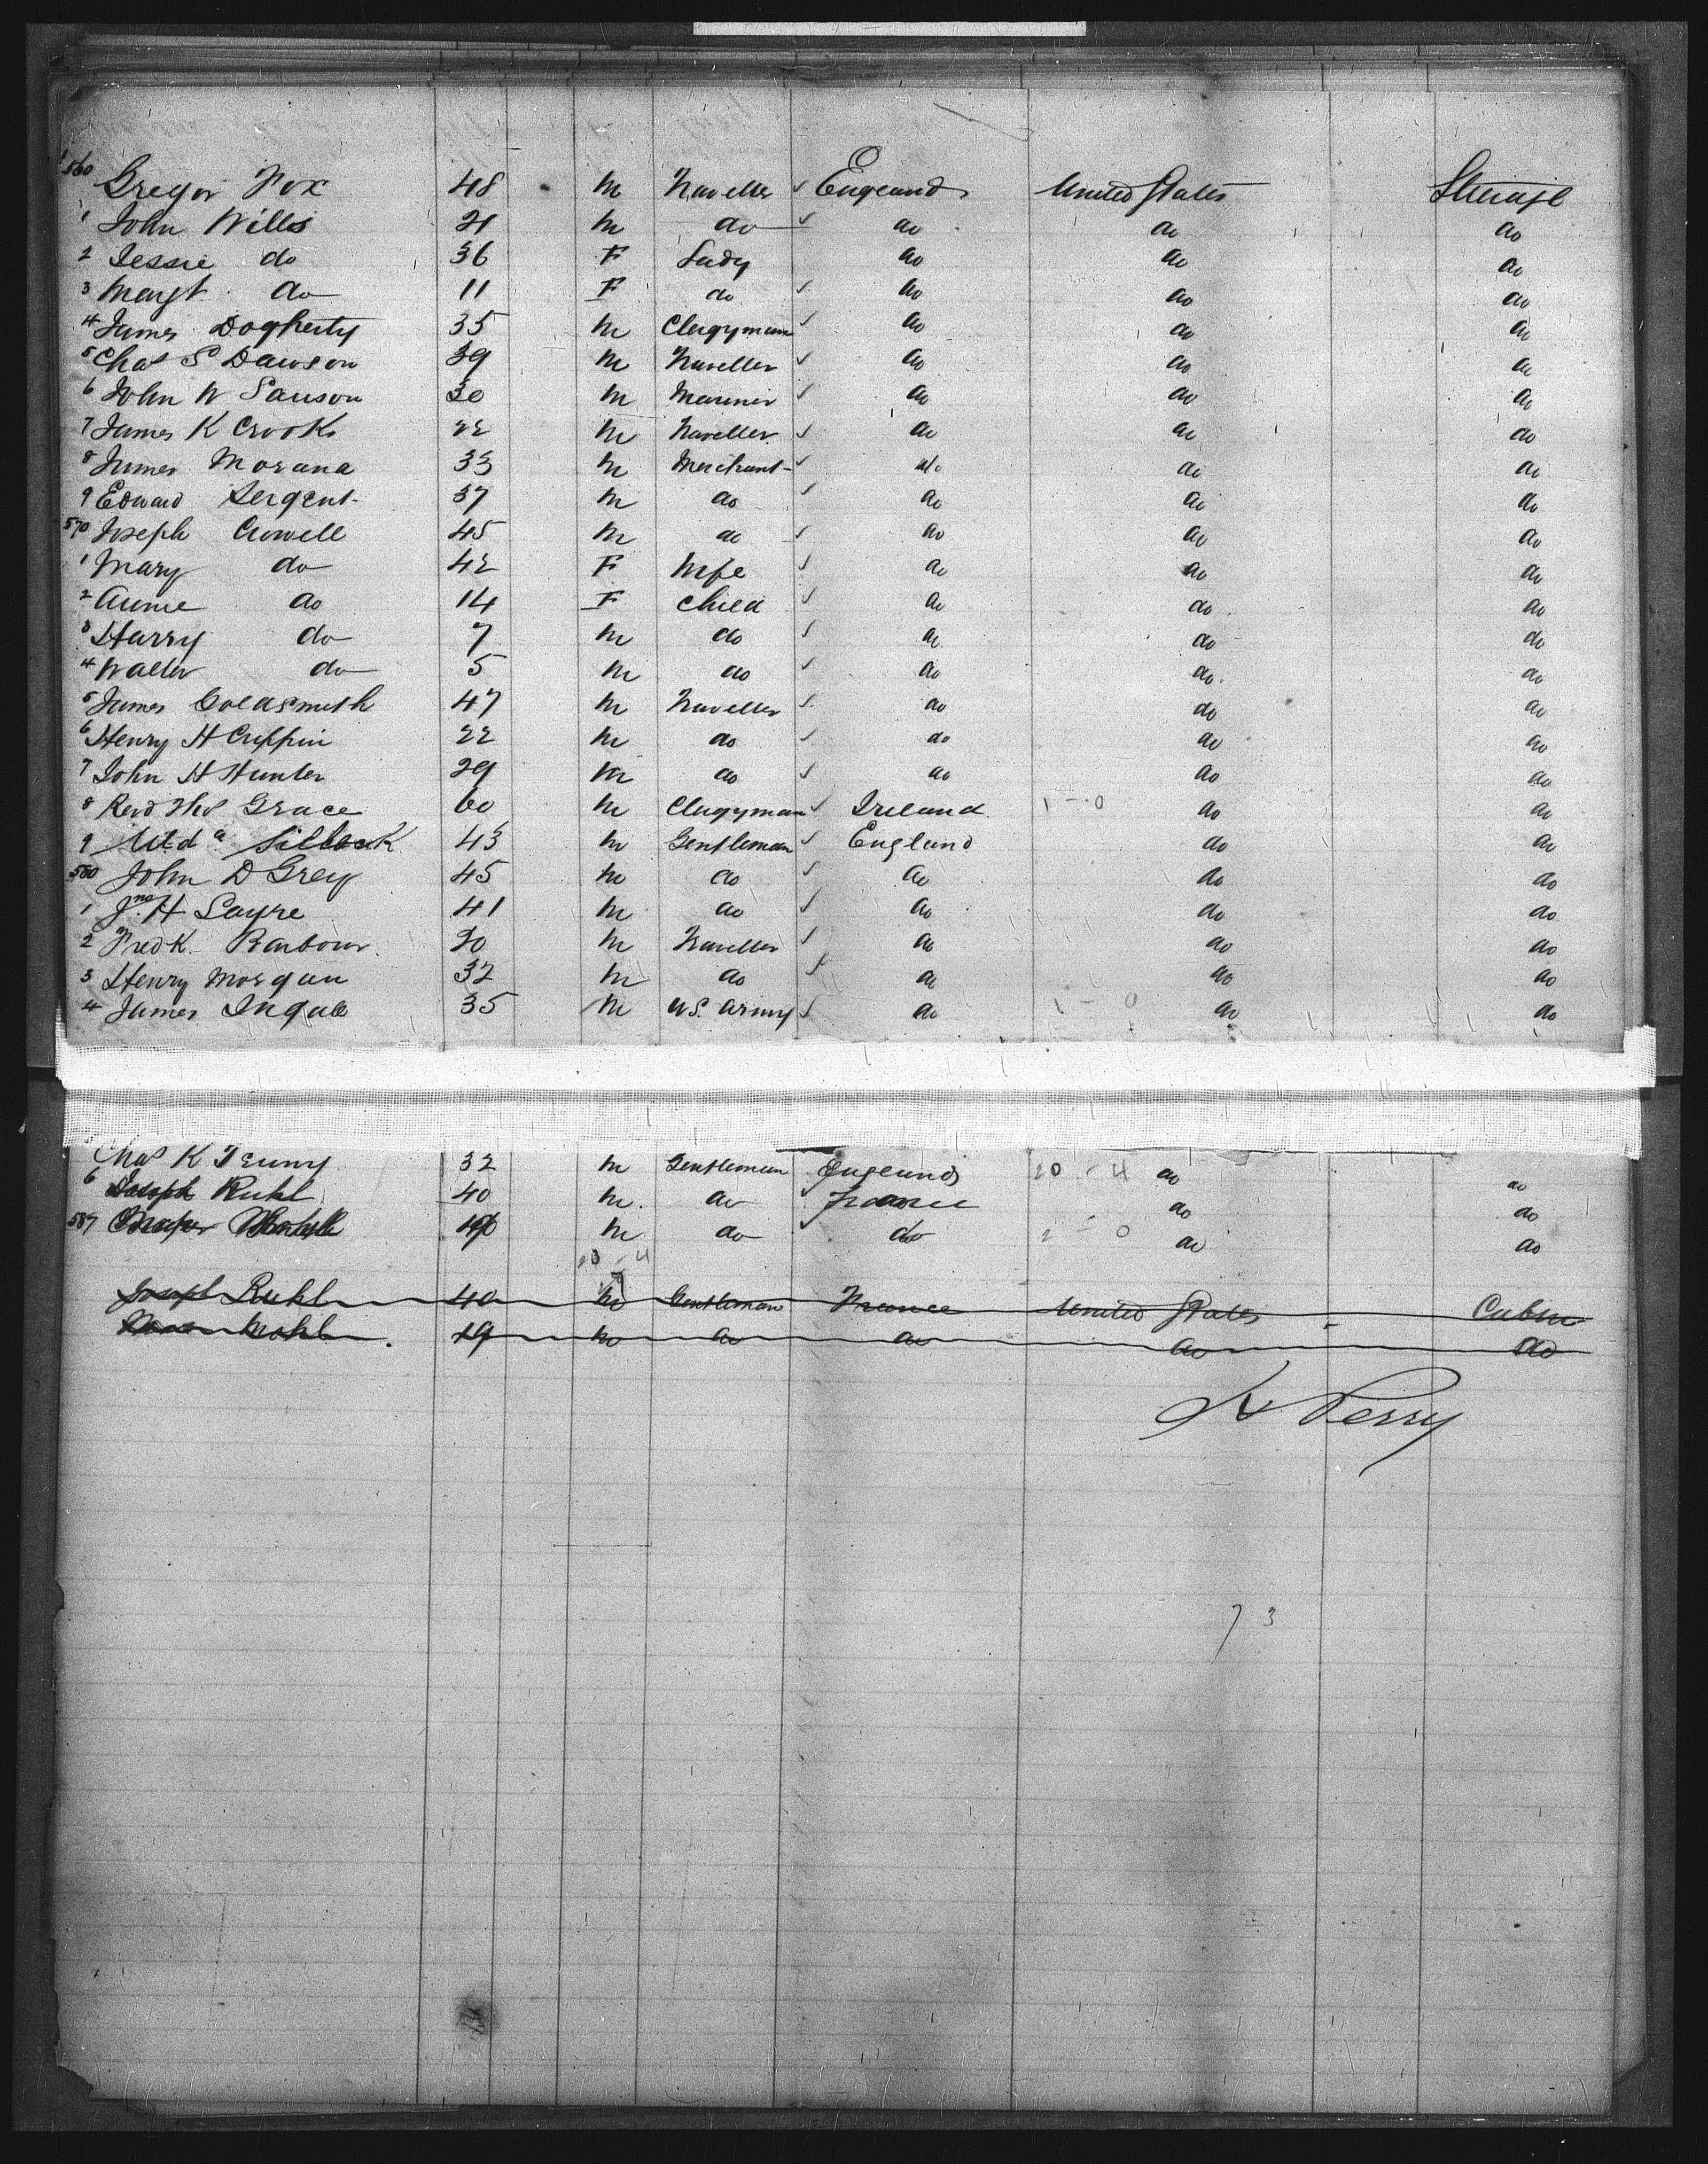 560 Gregor Fox 48 m Traveller England United States Steerage
1 John Willis 21 m do do do do
2 Jessie do 36 F Lady do do do
3 Margt do 11 F do do do do
4 James Dogherty 35 m Clergyman do do do
5 Chas S Dawson 39 m Traveller do do do
6 John W Sanson 30 m Mariner do do do
7 James K Crooks 22 m Traveller do do do
8 James Morana 33 m Merchant do do do
9 Edward Sergent 37 m do do do do
570 Joseph Crowell 45 m do do do do
1 Mary do 42 F Wife do do do
2 Annie do 14 F Child do do do
3 Harry do 7 m do do do do
4 Walter do 5 m do do do do
5 James Goldsmith 47 m Traveller do do do
6 Henry H Crippin 22 m do do do do
7 John H Hunter 29 m do do do do
8 Revd Thos Grace 60 m Clergyman Ireland 1-0 do do
9 43 m Gentleman England do do
580 John D Grey 45 m do do do do
1 Jno H Sayre 41 m do do do do
2 Fredk Barbour 30 m Traveller do do do
3 Henry Morgan 32 m do do do do
4 James Ingall 35 m U.S. Army do 1-0 do do
Chas K 32 m Gentleman England 20-4 do do
6 Joseph Ruhl 40 m do France do do
587 m do do 2-0 do do
23-4
Joseph Ruhl 40 m Gentleman France United States Cabin
Mohl 19 m do do do do
Perry
7 3